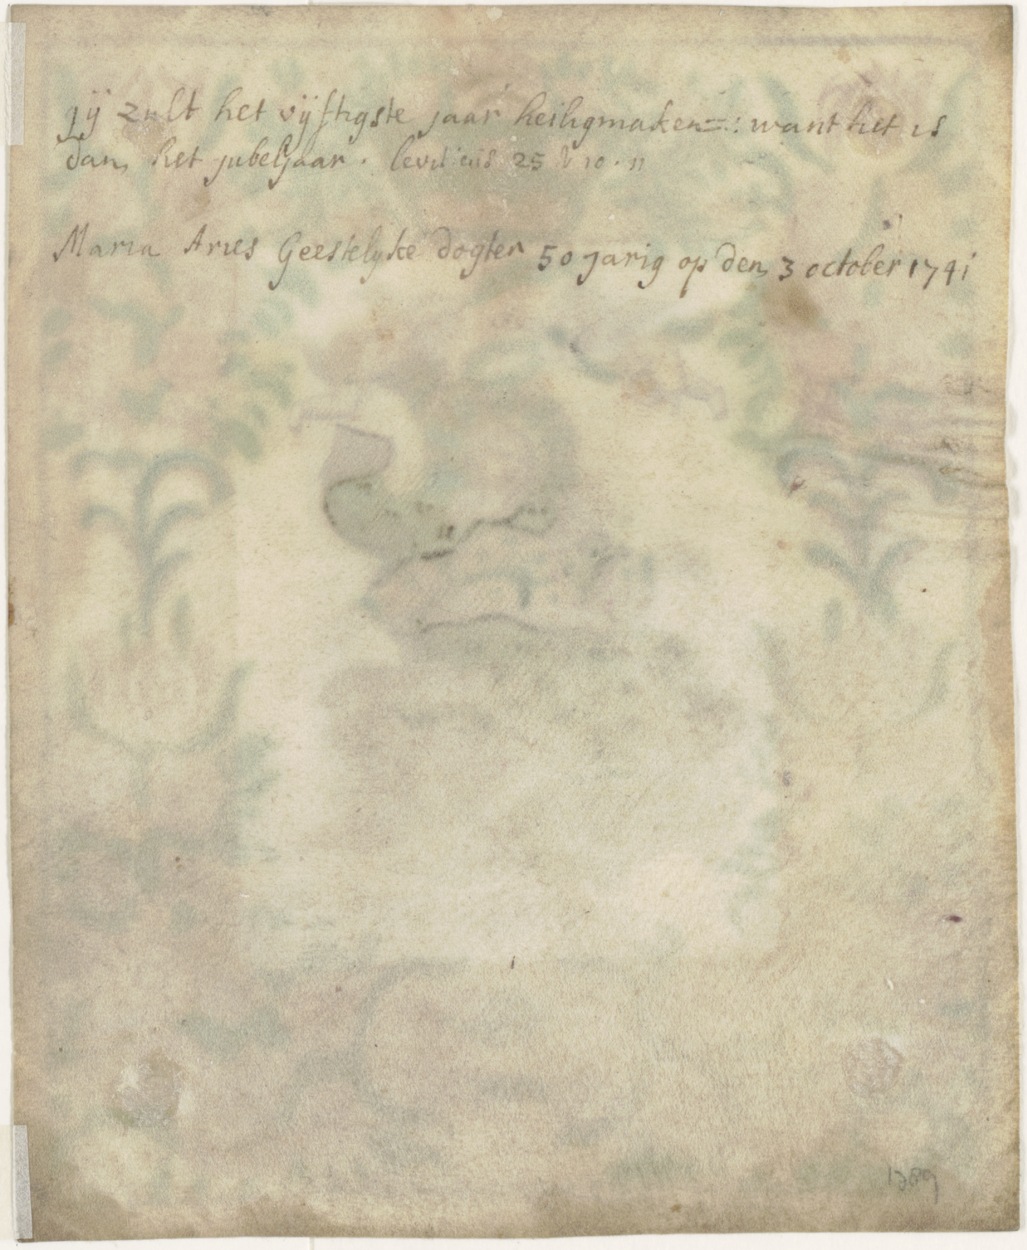 gij zult het vijftigste jaar heiligmaken=: want het is
dan, het jubeljaar. leviticus 25 v 10. 11
Maria Aries Geestelyke dogter 50 jarig op den, 3 october 1741
1389